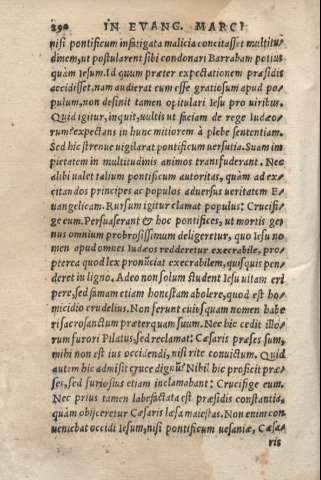 290 IN EVANG. MARCI
nisi pontificum infatigata malicia concitasset multitu/
dinem, ut postularent sibi condonari Barrabam potius
quàm Iesum. Id quum præter expectationem præsidis
accidisset, nam audierat eum esse gratiosum apud po/
pulum, non desinit tamen opitulari Iesu pro uiribus.
Quid igitur, inquit, uultis ut faciam de rege Iudæo/
rum? expectans in hunc mitiorem à plebe sententiam.
Sed hic strenue uigilarat pontificum uersutia. Suam im
pietatem in multitudinis animos transfuderant. Nec
alibi ualet talium pontificum autoritas, quàm ad ex/
citandos principes ac populos aduersus ueritatem E/
uangelicam. Rursum igitur clamat populus: Crucifi/
ge eum. Persuaserant & hoc pontifices, ut mortis ge/
nus omnium probrosissimum deligeretur, quo Iesu no
men apud omnes Iudæos redderetur execrabile, pro/
pterea quod lex pronūciat execrabilem, quisquis pen/
deret in ligno. Adeo non solum student Iesu uitam eri
pere, sed famam etiam honestam abolere, quod est ho/
micidio crudelius. Non ferunt cuiusquam nomen habe
ri sacrosanctum præterquam suum. Nec hic cedit illo/
rum furori Pilatus, sed reclamat: Cæsaris præses sum,
mihi non est ius occidendi, nisi rite conuictum. Quid
autem hic admisit cruce dignū? Nihil hic proficit præ/
ses, sed furiosius etiam inclamabant: Crucifige eum.
Nec prius tamen labefactata est præsidis constantia,
quàm obijceretur Cæsaris læsa maiestas. Non enim con
ueniebat occidi Iesum, nisi pontificum uesaniæ, Cæsa/
ris